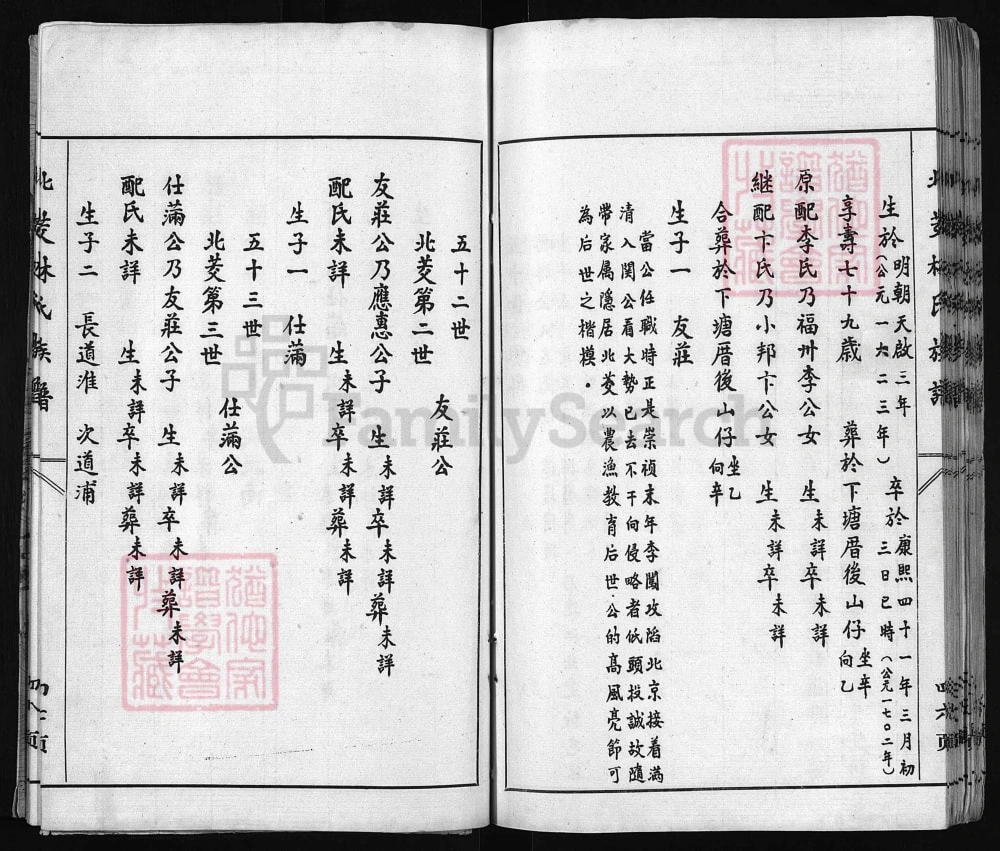 生於明朝天啟三年(公元一六二三年) 卒於康熙四十一年三月初三日巳時(公元一七〇二年)
享壽七十九歲 葬於下塘厝後山仔坐辛向乙
原配李氏乃福卅李公女 生未詳卒未詳
継配卞氏乃小邦卞公女 生未詳卒未詳
合葬於下塘厝後山仔坐乙向辛
生子一 友莊
當公任職時正是崇禎末年李闖攻陷北京接着滿
清入関公看大勢已去不干向侵略者低頭投誠故隨
帶家属隱居北茭以農漁教育后世公的髙風亮節可
為后世之楷模.
四六頁
五十二世
北茭第二世 友莊公
友莊公乃應惠公子 生未詳卒未詳葬未詳
配氏未詳 生未詳卒未詳葬未詳
生子一 仕滿
五十三世
北茭第三世 仕滿公
仕滿公乃友莊公子 生未詳卒未詳葬未詳
配氏未詳 生未詳卒未詳葬未詳
生子二 長道淮 次道浦
北茭林氏族譜
FamilySearch